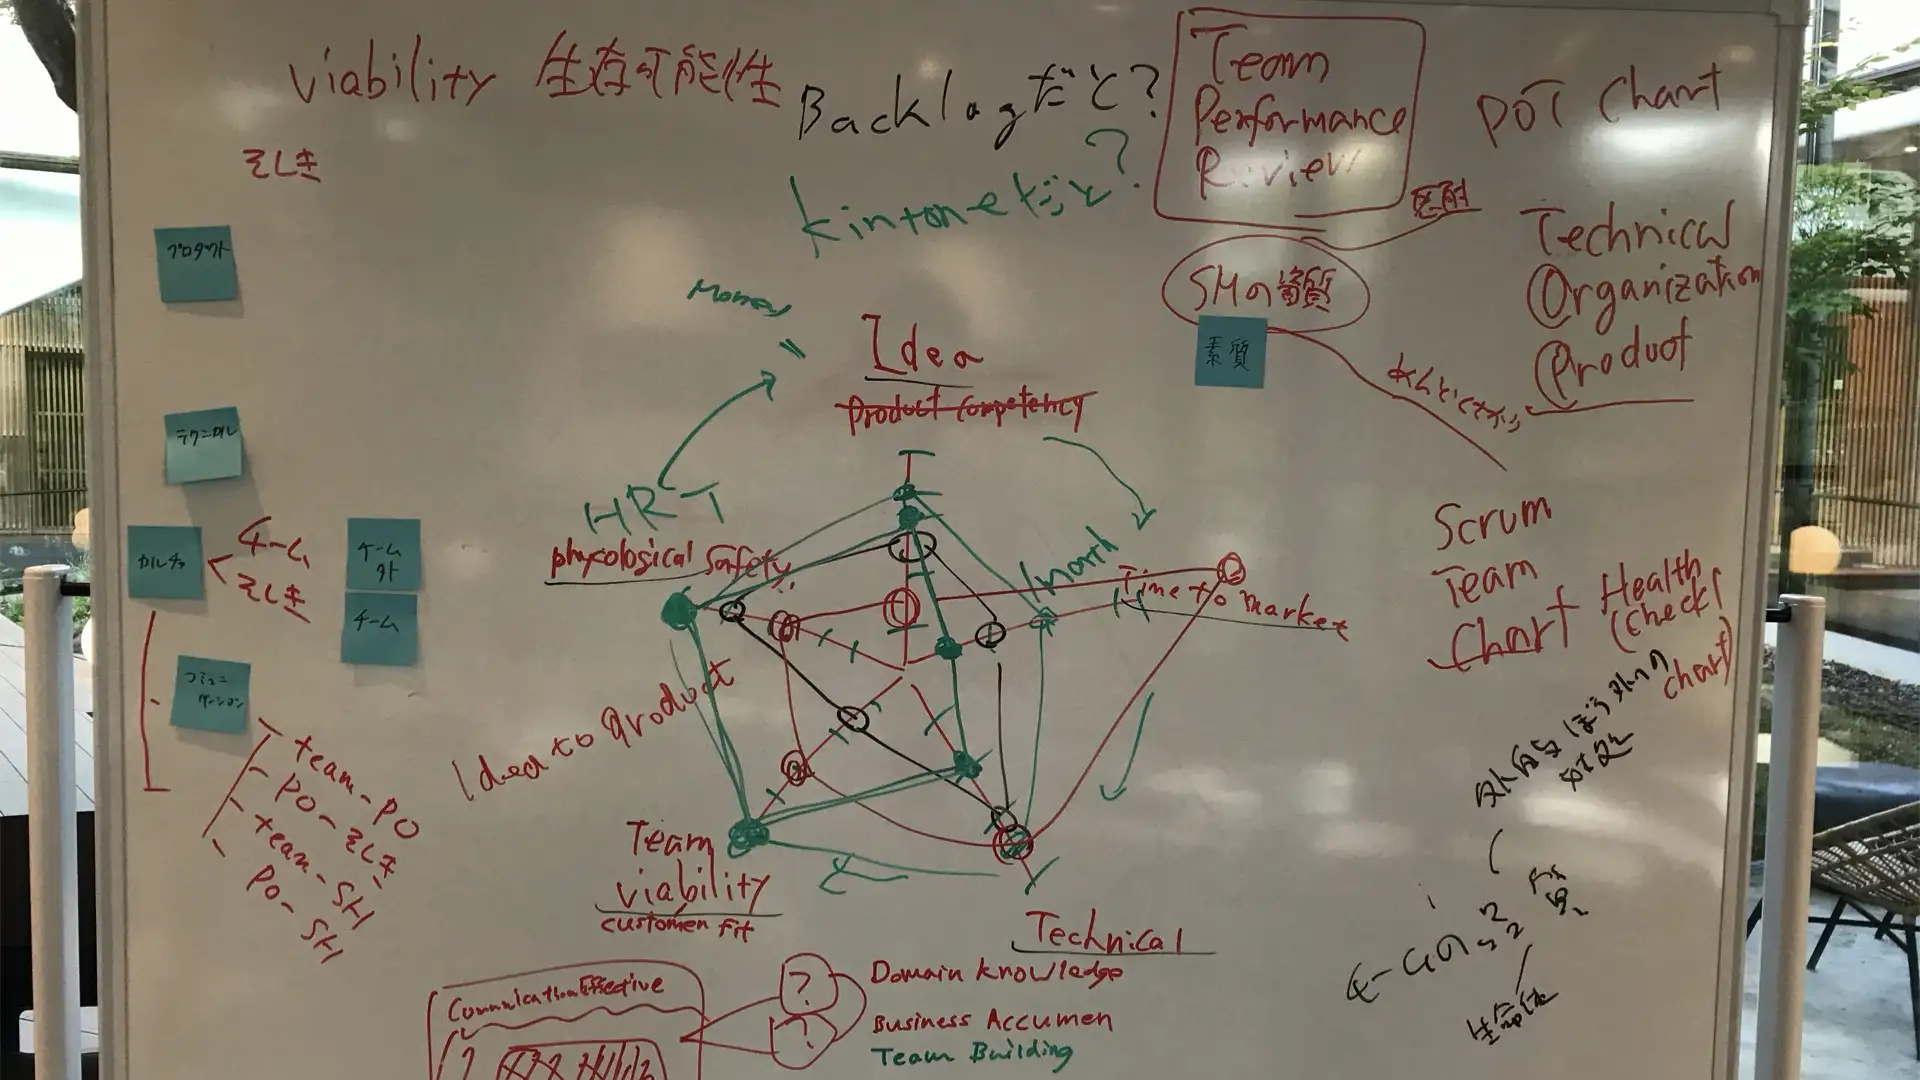 viability 生存可能性
そしき
Backlogだと?
kintoneだと?
Team
Performance
Review
POT Chart
Technical
Organization
Product
SMの資質
素質
プロダクト
テクニカル
カルチャ
チーム
そしき
チーム
外
チーム
コミュニ
ケーション
team-PO
PO-そしき
team-SM
PO-SM
Money
Idea
Product Competency
HRT
phycological safety
Time to market
Idea to Product
Team
viability
customer fit
Technical
Scrum
Team
Chart
Health
(Check
Chart)
Communication Effective
?
?
Domain knowledge
Business Accumen
Team Building